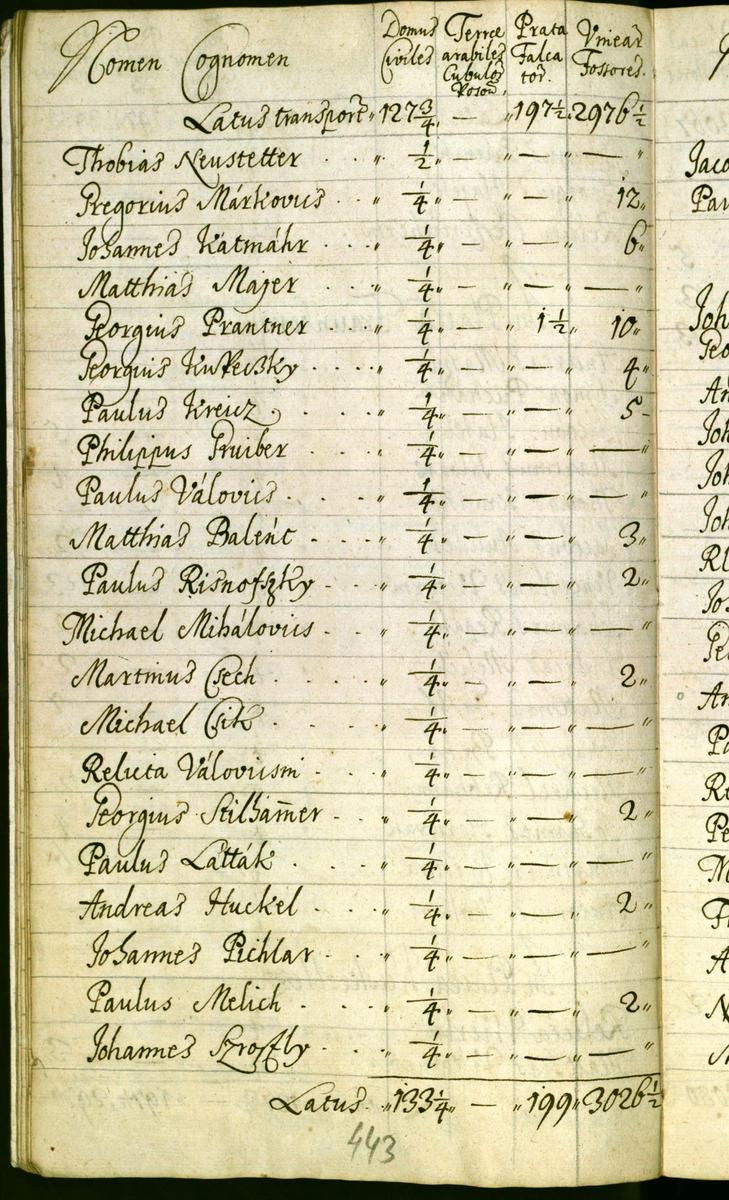 Nomen Cognomen Domus Civiles Terræ arabiles Cubulor Poson Prata Falcator Vinear Fossores
Latus transport 127 3/4 „ — „ 197 1/2 „ 2976 1/2
Thobias Neustetter . . . „ 1/2 „ — „ — „ — „
Gregorius Márkovics . . . „ 1/4 „ — „ — „ 12 „
Johannes Katmáhr . . . „ 1/4 „ — „ — „ 6 „
Matthias Majer . . . . „ 1/4 „ — „ — „ — „
Georgius Prantner . . . . „ 1/4 „ — „ 1 1/2 „ 10 „
Georgius Kupeczky . . . . „ 1/4 „ — „ — „ 4 „
Paulus Kreicz . . . . „ 1/4 „ — „ — „ 5 -
Philippus Gruiber . . . . „ 1/4 „ — „ — „ — „
Paulus Válovics . . . . „ 1/4 „ — „ — „ — „
Matthias Balent . . . . „ 1/4 „ — „ — „ 3 „
Paulus Risnofszky . . . „ 1/4 „ — „ — „ 2 „
Michael Mihálovics . . . . „ 1/4 „ — „ — „ — „
Martinus Csech . . . . „ 1/4 „ — „ — „ 2 „
Michael Csik . . . . „ 1/4 „ — „ — „ — „
Relicta Válovicsin . . . „ 1/4 „ — „ — „ — „
Georgius Stilham̄er . . . „ 1/4 „ — „ — „ 2 „
Paulus Latták . . . . „ 1/4 „ — „ — „ — „
Andreas Huckel . . . . „ 1/4 „ — „ — „ 2 „
Johannes Pichlar . . . . „ 1/4 „ — „ — „ — „
Paulus Melich . . . . „ 1/4 „ — „ — „ 2 „
Johannes . . . . „ 1/4 „ — „ — „ — „
Latus „ 133 1/4 „ — „ 199 „ 3026 1/2
443